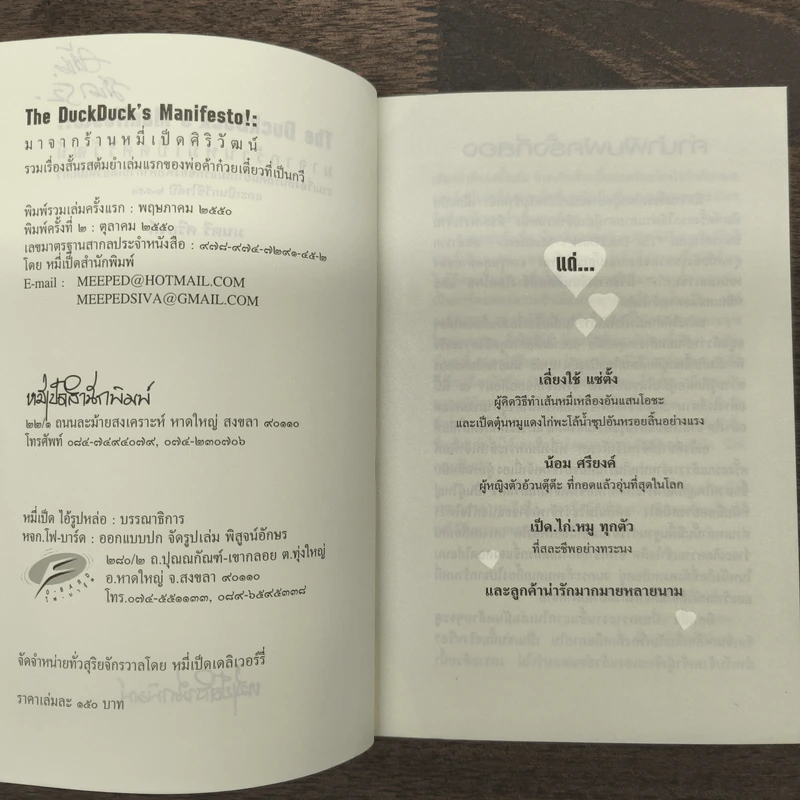 The DuckDuck's Manifesto!:
มาจากร้านหมี่เป็ดศิริวัฒน์
รวมเรื่องสั้นรสต้มยำเล่มแรกของพ่อค้าก๋วยเตี๋ยวที่เป็นกวี
พิมพ์รวมเล่มครั้งแรก : พฤษภาคม ๒๕๕๐
พิมพ์ครั้งที่ ๒ : ตุลาคม ๒๕๕๐
เลขมาตรฐานสากลประจำหนังสือ : ๙๗๘-๙๗๔-๗๒๙๑-๔๕-๒
โดย หมี่เป็ดสำนักพิมพ์
E-mail : MEEPED@HOTMAIL.COM
MEEPEDSIVA@GMAIL.COM
หมี่เป็ดสำนักพิมพ์
๒๒/๑ ถนนละม้ายสงเคราะห์ หาดใหญ่ สงขลา ๙๐๑๑๐
โทรศัพท์ ๐๘๔-๗๔๙๔๐๗๙, ๐๗๔-๒๓๐๗๐๖
หมี่เป็ด ไอ้รูปหล่อ : บรรณาธิการ
หจก.โฟ-บาร์ด : ออกแบบปก จัดรูปเล่ม พิสูจน์อักษร
๒๘๐/๒ ถ.ปุณณกัณฑ์-เขากลอย ต.ทุ่งใหญ่
อ.หาดใหญ่ จ.สงขลา ๙๐๑๑๐
โทร.๐๗๔-๕๕๑๑๓๓, ๐๘๙-๖๕๙๕๓๓๘
จัดจำหน่ายทั่วสุริยจักรวาลโดย หมี่เป็ดเดลิเวอร์รี่
ราคาเล่มละ ๑๕๐ บาท
แด่...
เลี่ยงใช้ แซ่ตั้ง
ผู้คิดวิธีทำเส้นหมี่เหลืองอันแสนโอชะ
และเป็ดตุ๋นหมูแดงไก่พะโล้น้ำซุปอันหรอยลิ้นอย่างแรง
น้อม ศรียงค์
ผู้หญิงตัวอ้วนตุ๊ต๊ะ ที่กอดแล้วอุ่นที่สุดในโลก
เป็ด.ไก่.หมู ทุกตัว
ที่สละชีพอย่างทระนง
และลูกค้าน่ารักมากมายหลายนาม